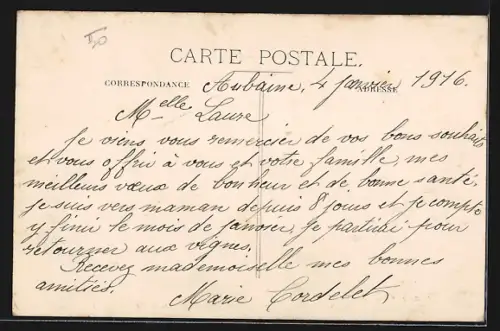 CARTE POSTALE.
CORRESPONDANCE
ADRESSE
Aubaine, 4 janvier 1916.
Melle Laure
Je viens vous remercier de vos bons souhaits
et vous offrir à vous et votre famille, mes
meilleurs vœux de bonheur et de bonne santé,
je suis vers maman depuis 8 jours et je compte
y finir le mois de janvier, je partirai pour
retourner aux vignes.
Recevez mademoiselle mes bonnes
amitiés.
Marie Cordelet